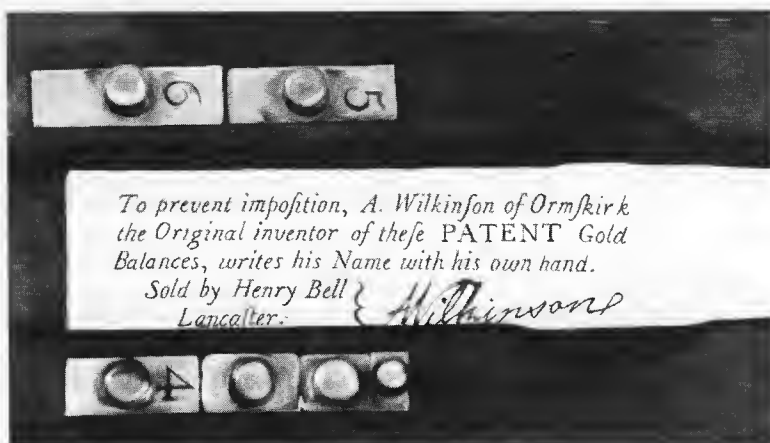 6 5
To prevent impoſition, A. Wilkinſon of Ormſkirk
the Original inventor of theſe PATENT Gold
Balances, writes his Name with his own hand.
Sold by Henry Bell
Lancaſter.
AWilkinson
4